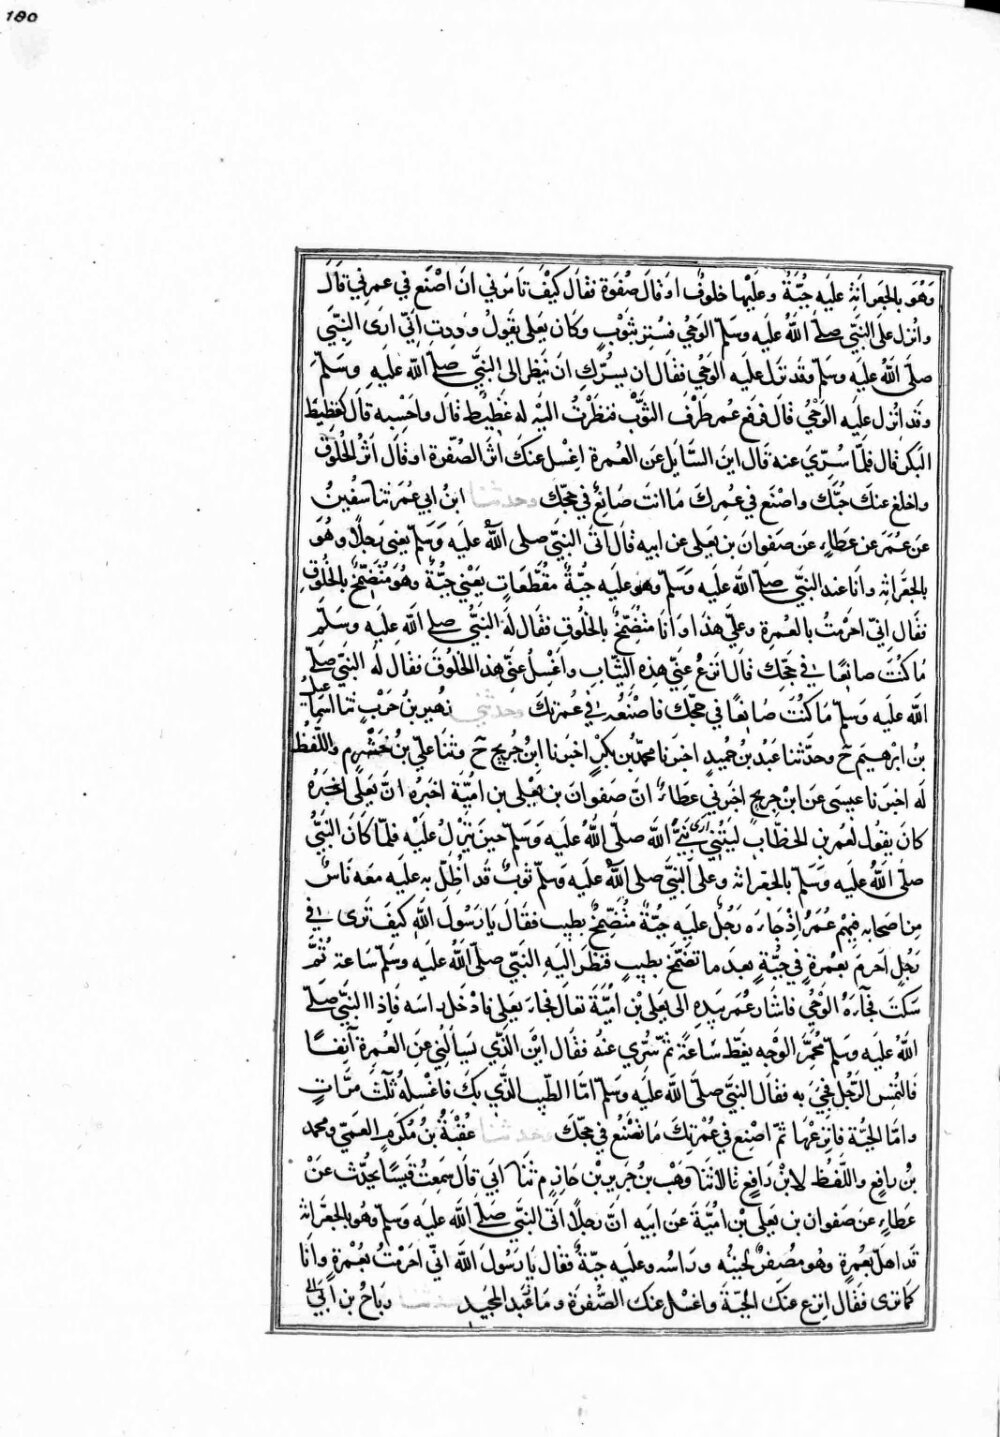 180
وَهُوَ بالجعرانة عليه جُبَّةٌ وعليها خلوقٌ اوقال صُفرة فقال كيف تأمرني ان اصنع في عمرتي قال
وانزل على النبي صلى الله عليه وسلم الوحي فستر بثوب وكان يعلى يقول وددت اني ارى النبي
صلى الله عليه وسلم وقد نزل عليه الوحي فقال ان يسرك ان تنظر الى النبي صلى الله عليه وسلم
وقد انزل عليه الوحي قال فرفع عمر طرف الثوب فنظرت اليه له غطيط قال واحسبه قال كغطيط
البكر قال فلما سري عنه قال اين السايل عن العمرة اغسل عنك اثر الصفرة اوقال اثر الخلوق
واخلع عنك جبتك واصنع في عمرتك ما انت صانع في حجك وحدثنا ابن ابي عمر ثنا سفين
عن عمر عن عطاء عن صفوان بن يعلى عن ابيه قال اتى النبي صلى الله عليه وسلم يعني رجلا وهو
بالجعرانة وانا عند النبي صلى الله عليه وسلم وهو عليه جبة مقطعات يعني جبة وهو متضمخ بالخلوق
فقال اني احرمت بالعمرة وعلي هذا وانا متضمخ بالخلوق فقال له النبي صلى الله عليه وسلم
ما كنت صانعا في حجك قال انزع عني هذه الثياب واغسل عني هذا الخلوق فقال له النبي صلى
الله عليه وسلم ما كنت صانعا في حجك فاصنعه في عمرتك وحدثني زهير بن حرب ثنا اسماعيل
بن ابرهيم ح وحدثنا عبد بن حميد اخبرنا محمد بن بكر اخبرنا ابن جريج ح وثنا علي بن خشرم واللفظ
له اخبرنا عيسى عن ابن جريج اخبرني عطاء ان صفوان بن يعلى بن امية اخبره ان يعلى اخبره
كان يقول لعمر بن الخطاب ليتني ارى نبي الله صلى الله عليه وسلم حين ينزل عليه فلما كان النبي
صلى الله عليه وسلم بالجعرانة وعلى النبي صلى الله عليه وسلم ثوب قد اظل به عليه معه ناس
من اصحابه فيهم عمر اذ جاءه رجل عليه جبة متضمخ بطيب فقال يا رسول الله كيف ترى في
رجل احرم بعمرة في جبة بعد ما تضمخ بطيب فنظر اليه النبي صلى الله عليه وسلم ساعة ثم
سكت فجاءه الوحي فاشار عمر بيده الى يعلى بن امية تعال فجاء يعلى فادخل راسه فاذا النبي صلى
الله عليه وسلم محمر الوجه يغط ساعة ثم سري عنه فقال اين الذي يسألني عن العمرة آنفا
فالتمس الرجل فجيء به فقال النبي صلى الله عليه وسلم اما الطيب الذي بك فاغسله ثلث مرات
واما الجبة فانزعها ثم اصنع في عمرتك ما تصنع في حجك وحدثنا عقبة بن مكرم العمي ومحمد
بن رافع واللفظ لابن رافع قالا ثنا وهب بن جرير بن حازم ثنا ابي قال سمعت قيسا يحدث عن
عطاء عن صفوان بن يعلى بن امية عن ابيه ان رجلا اتى النبي صلى الله عليه وسلم وهو بالجعرانة
قد اهل بعمرة وهو مصفر لحيته وراسه وعليه جبة فقال يا رسول الله اني احرمت بعمرة وانا
كما ترى فقال انزع عنك الجبة واغسل عنك الصفرة وما عبد المجيد رباح بن ابي